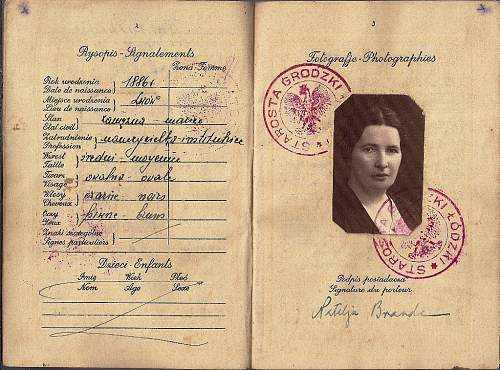 2
Rysopis - Signalements
Żona-Femme
Rok urodzenia
Date de naissance
1886 r
Miejsce urodzenia
Lieu de naissance
Lwów
Stan
Etat civil
zamężna
Zatrudnienie
Profession
nauczycielka - institutrice
Wzrost
Taille
średni - moyenne
Twarz
Visage
owalna - ovale
Włosy
Cheveux
czarne - noirs
Oczy
Yeux
piwne - bruns
Znaki szczególne
Signes particuliers
Dzieci - Enfants
Imię Wiek Płeć
Nom Age Sexe
3
Fotografje - Photographies
STAROSTA GRODZKI
ŁÓDZKI
Podpis posiadacza
Signature du porteur